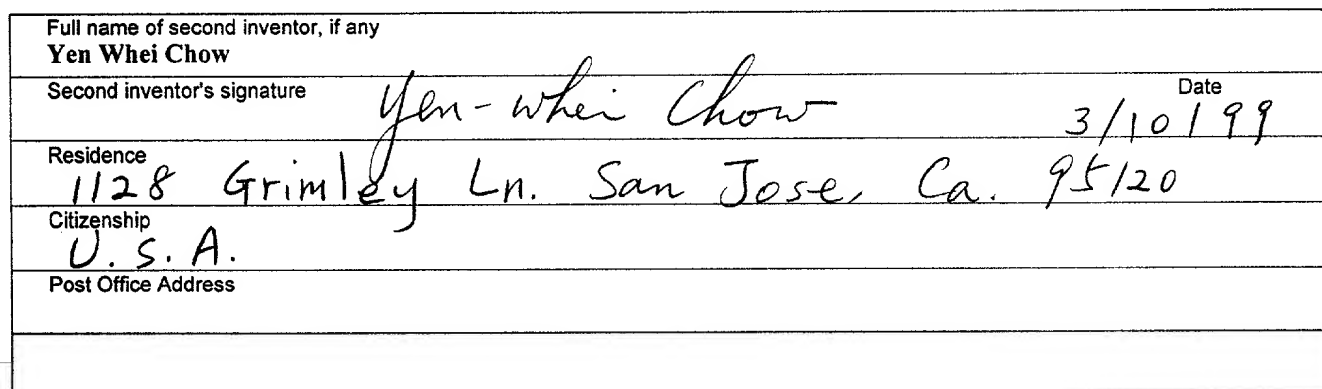 Full name of second inventor, if any
Yen Whei Chow
Second inventor's signature Yen-whei Chow Date 3/10/99
Residence
1128 Grimley Ln. San Jose, Ca. 95120
Citizenship
U.S.A.
Post Office Address